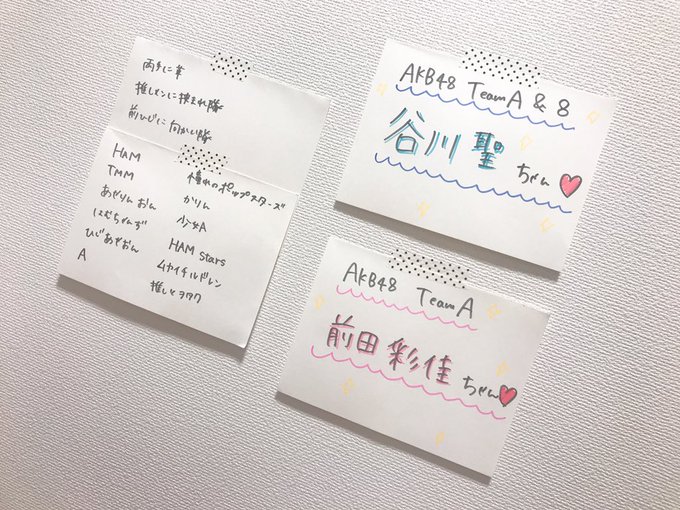 両手に華
推しメンに挟まれ隊
前ひじに向かい隊
HAM
TMM
あやりんおん
はむちゃんず
ひじあやおん
A
憧れのポップスターズ
かりん
少女A
HAM Stars
ムカイチルドレン
推しとヲタク
AKB48 TeamA & 8
谷川聖ちゃん
AKB48 TeamA
前田彩佳ちゃん